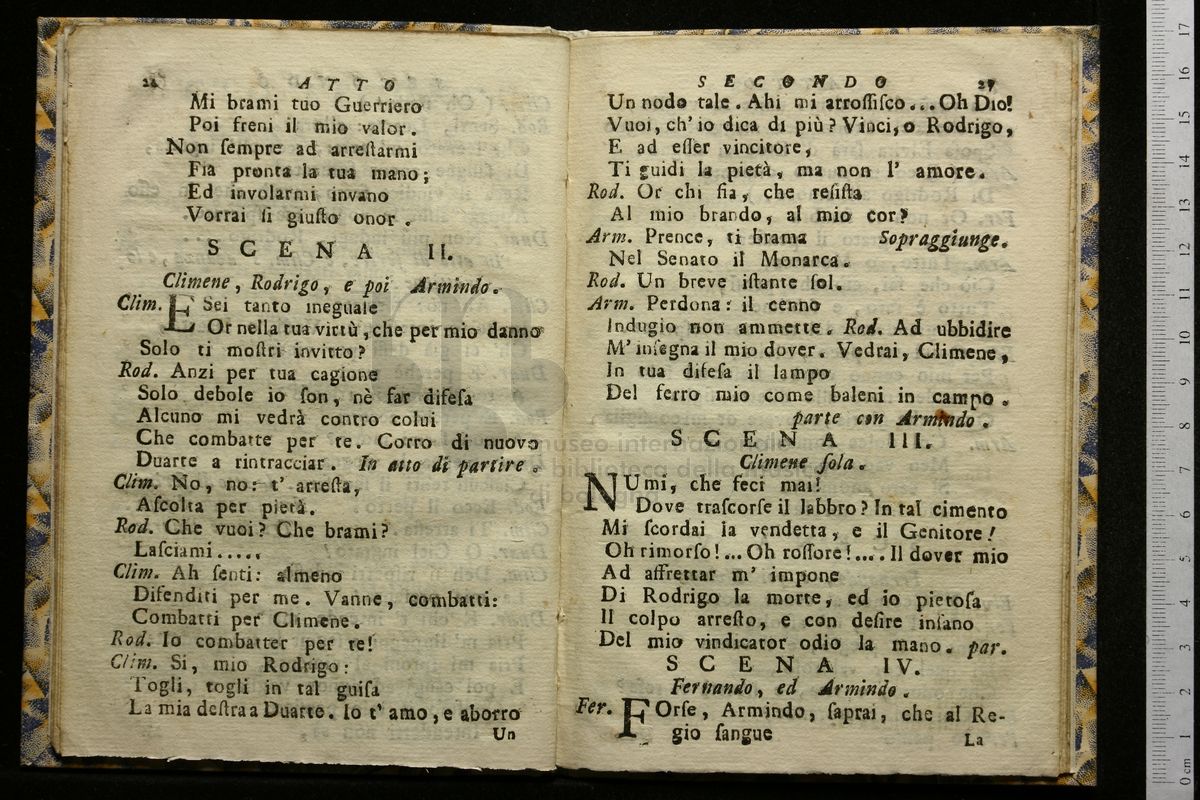 ATTO
Mi brami tuo Guerriero
Poi freni il mio valor.
Non ſempre ad arreſtarmi
Fia pronta la tua mano;
Ed involarmi invano
Vorrai ſi giuſto onor.
SCENA II.
Climene, Rodrigo, e poi Armindo.
Clim. E Sei tanto ineguale
Or nella tua virtù, che per mio danno
Solo ti moſtri invitto?
Rod. Anzi per tua cagione
Solo debole io ſon, nè far difeſa
Alcuno mi vedrà contro colui
Che combatte per te. Corro di nuovo
Duarte a rintracciar. In atto di partire.
Clim. No, no: t' arreſta,
Aſcolta per pietà.
Rod. Che vuoi? Che brami?
Laſciami.....
Clim. Ah ſenti: almeno
Difenditi per me. Vanne, combatti:
Combatti per Climene.
Rod. Io combatter per te!
Clim. Si, mio Rodrigo:
Togli, togli in tal guiſa
La mia deſtra a Duarte. Io t' amo, e aborro
Un
SECONDO 27
Un nodo tale. Ahi mi arroſſiſco... Oh Dio!
Vuoi, ch' io dica di più? Vinci, o Rodrigo,
E ad eſſer vincitore,
Ti guidi la pietà, ma non l' amore.
Rod. Or chi fia, che reſiſta
Al mio brando, al mio cor?
Arm. Prence, ti brama Sopraggiunge.
Nel Senato il Monarca.
Rod. Un breve iſtante ſol.
Arm. Perdona: il cenno
Indugio non ammette. Rod. Ad ubbidire
M' inſegna il mio dover. Vedrai, Climene,
In tua difeſa il lampo
Del ferro mio come baleni in campo.
parte con Armindo.
SCENA III.
Climene ſola.
NUmi, che feci mai!
Dove traſcorſe il labbro? In tal cimento
Mi ſcordai la vendetta, e il Genitore!
Oh rimorſo!... Oh roſſore!.... Il dover mio
Ad affrettar m' impone
Di Rodrigo la morte, ed io pietoſa
Il colpo arreſto, e con deſire inſano
Del mio vindicator odio la mano. par.
SCENA IV.
Fernando, ed Armindo.
Fer. FOrſe, Armindo, ſaprai, che al Re-
gio ſangue
La
museo internazionale
biblioteca della
di bologna
0 cm 1 2 3 4 5 6 7 8 9 10 11 12 13 14 15 16 17